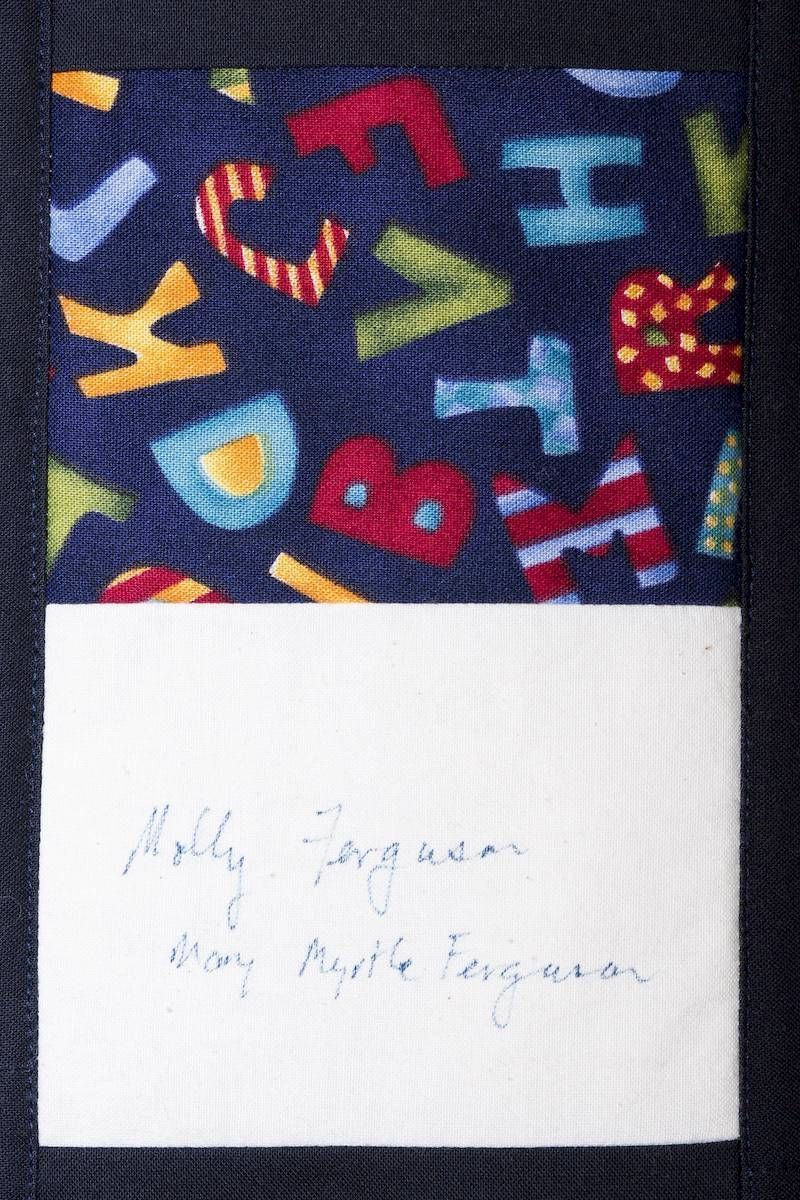 F
H
C
V
K
R
T
D
B
M
Molly Ferguson
Mary Myrtle Ferguson